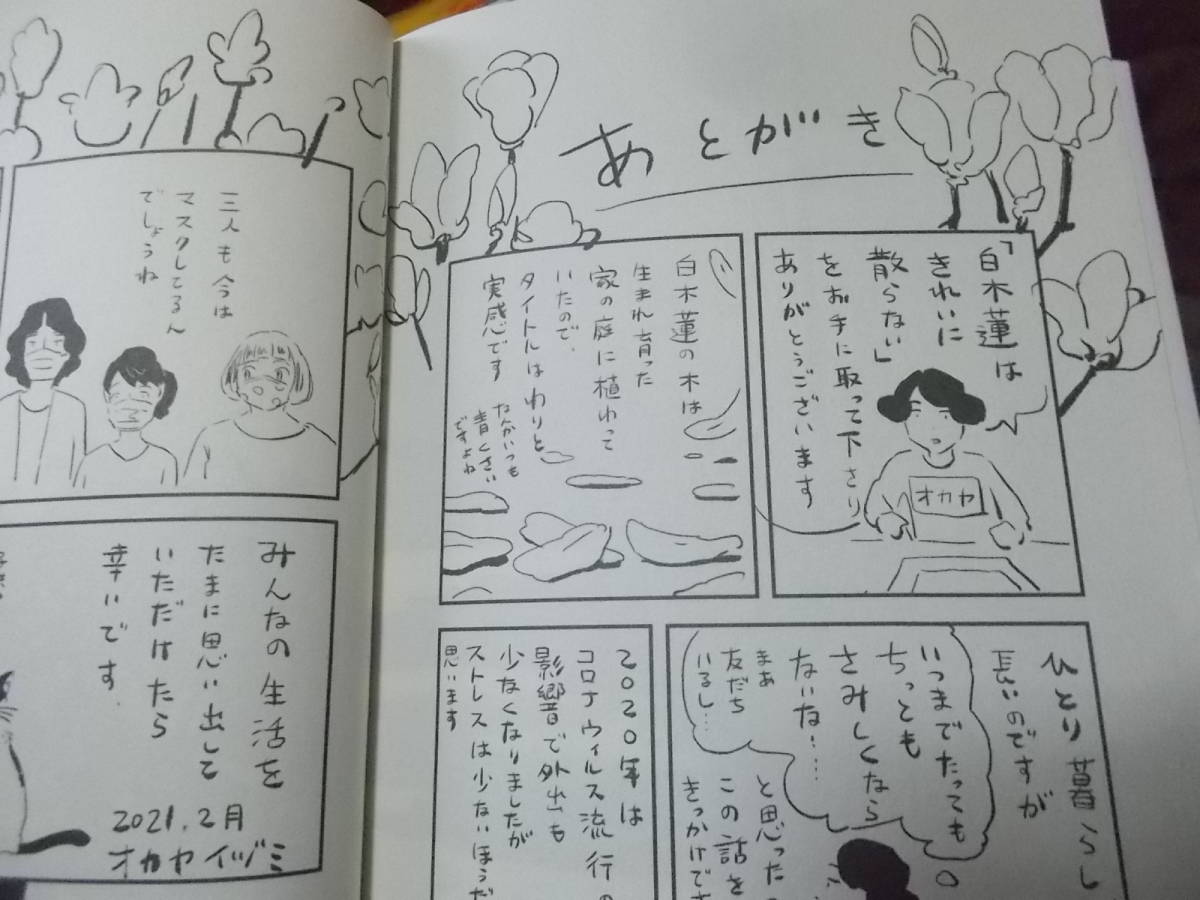 あとがき
「白木蓮は
きれいに
散らない」
をお手に取って下さり
ありがとうございます
オカヤ
白木蓮の木は
生まれ育った
家の庭に植わって
いたので、
タイトルはわりと
実感です
なんかいつも
青くさい
ですよね
ひとり暮らし
長いのですが
いつまでたっても
ちっとも
さみしくなら
ないな……
まあ
友だち
いるし…
と思った
この話を
きっかけです
2020年は
コロナウィルス流行の
影響で外出も
少なくなりましたが
ストレスは少ないほうだ
思います
三人も今は
マスクしてるん
でしょうね
みんなの生活を
たまに思い出して
いただけたら
幸いです.
2021.2月
オカヤイヅミ